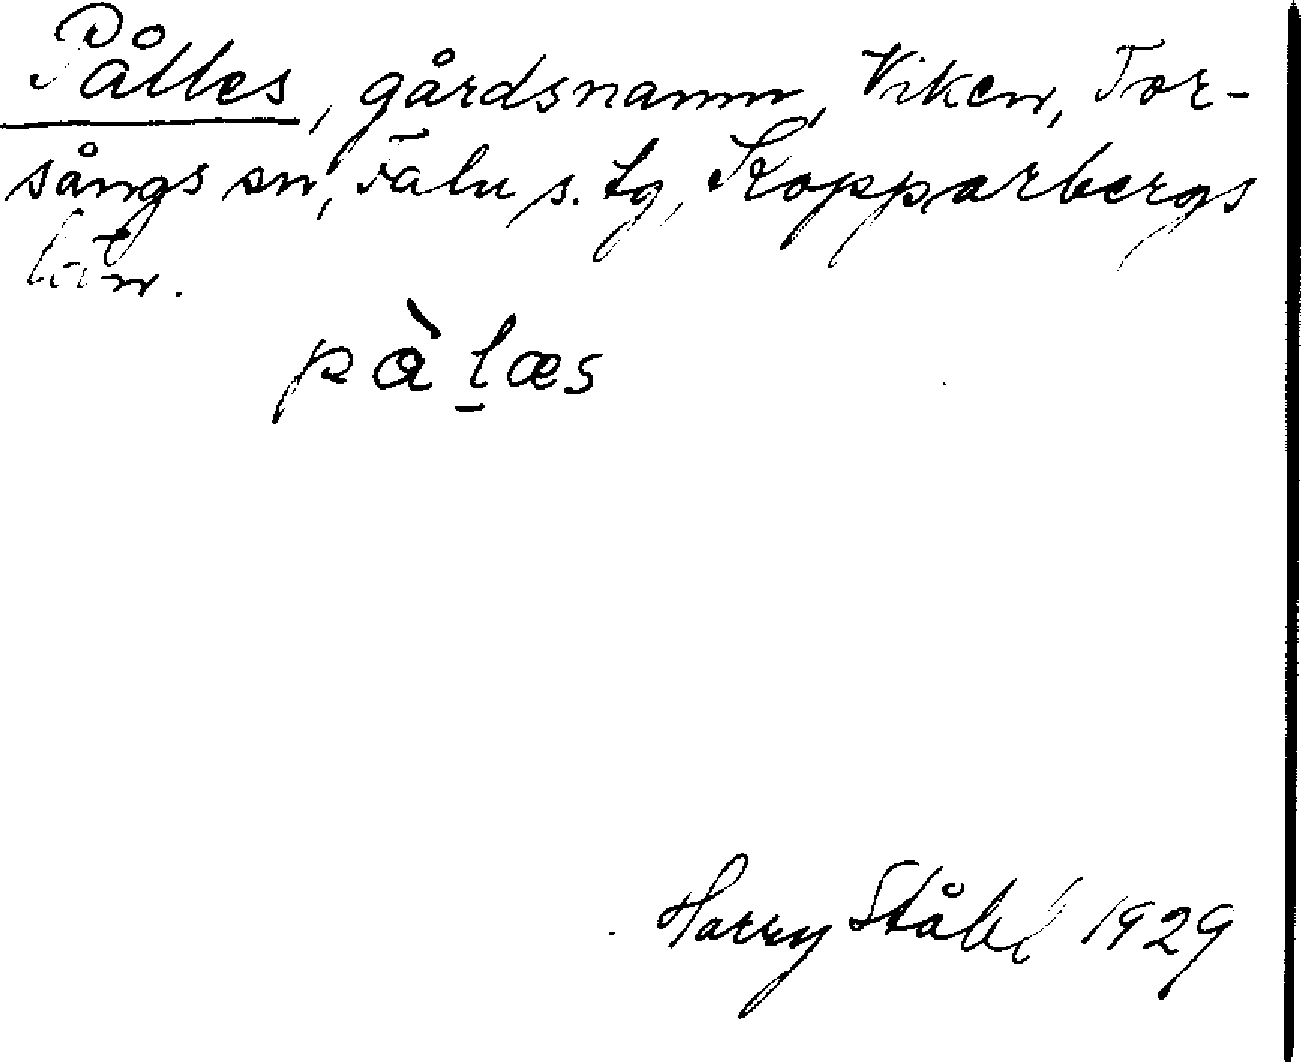 Pålles, gårdsnamn, Viken, Tor-
sångs sn, Falu s. tg, Kopparbergs
län.
pàl̠æs
Harry Ståhl 1929